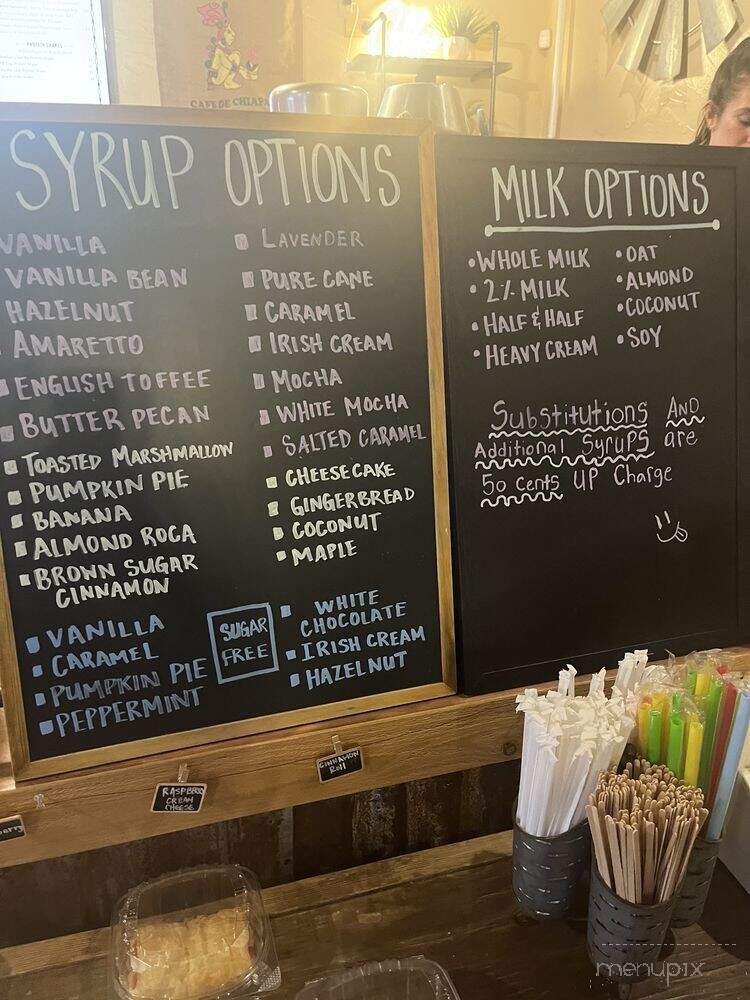 PROTEIN SHAKES
CAFE DE CHIAPAS
SYRUP OPTIONS
VANILLA
VANILLA BEAN
HAZELNUT
AMARETTO
ENGLISH TOFFEE
BUTTER PECAN
TOASTED MARSHMALLOW
PUMPKIN PIE
BANANA
ALMOND ROCA
BROWN SUGAR
CINNAMON
LAVENDER
PURE CANE
CARAMEL
IRISH CREAM
MOCHA
WHITE MOCHA
SALTED CARAMEL
CHEESECAKE
GINGERBREAD
COCONUT
MAPLE
VANILLA
CARAMEL
PUMPKIN PIE
PEPPERMINT
SUGAR
FREE
WHITE
CHOCOLATE
IRISH CREAM
HAZELNUT
MILK OPTIONS
• WHOLE MILK
• 2% MILK
• HALF & HALF
• HEAVY CREAM
• OAT
• ALMOND
• COCONUT
• SOY
Substitutions AND
Additional Syrups are
50 cents UP Charge
CREAM
CHEESE
CINNAMON
Roll
menupix